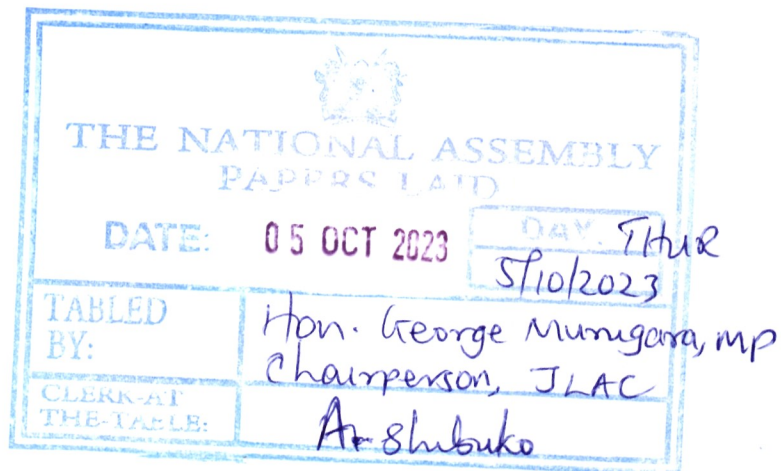 THE NATIONAL ASSEMBLY
PAPERS LAID
DATE: 05 OCT 2023 DAY. THUR
5/10/2023
TABLED BY: Hon. George Murugara, MP
Chairperson, JLAC
CLERK-AT THE-TABLE: